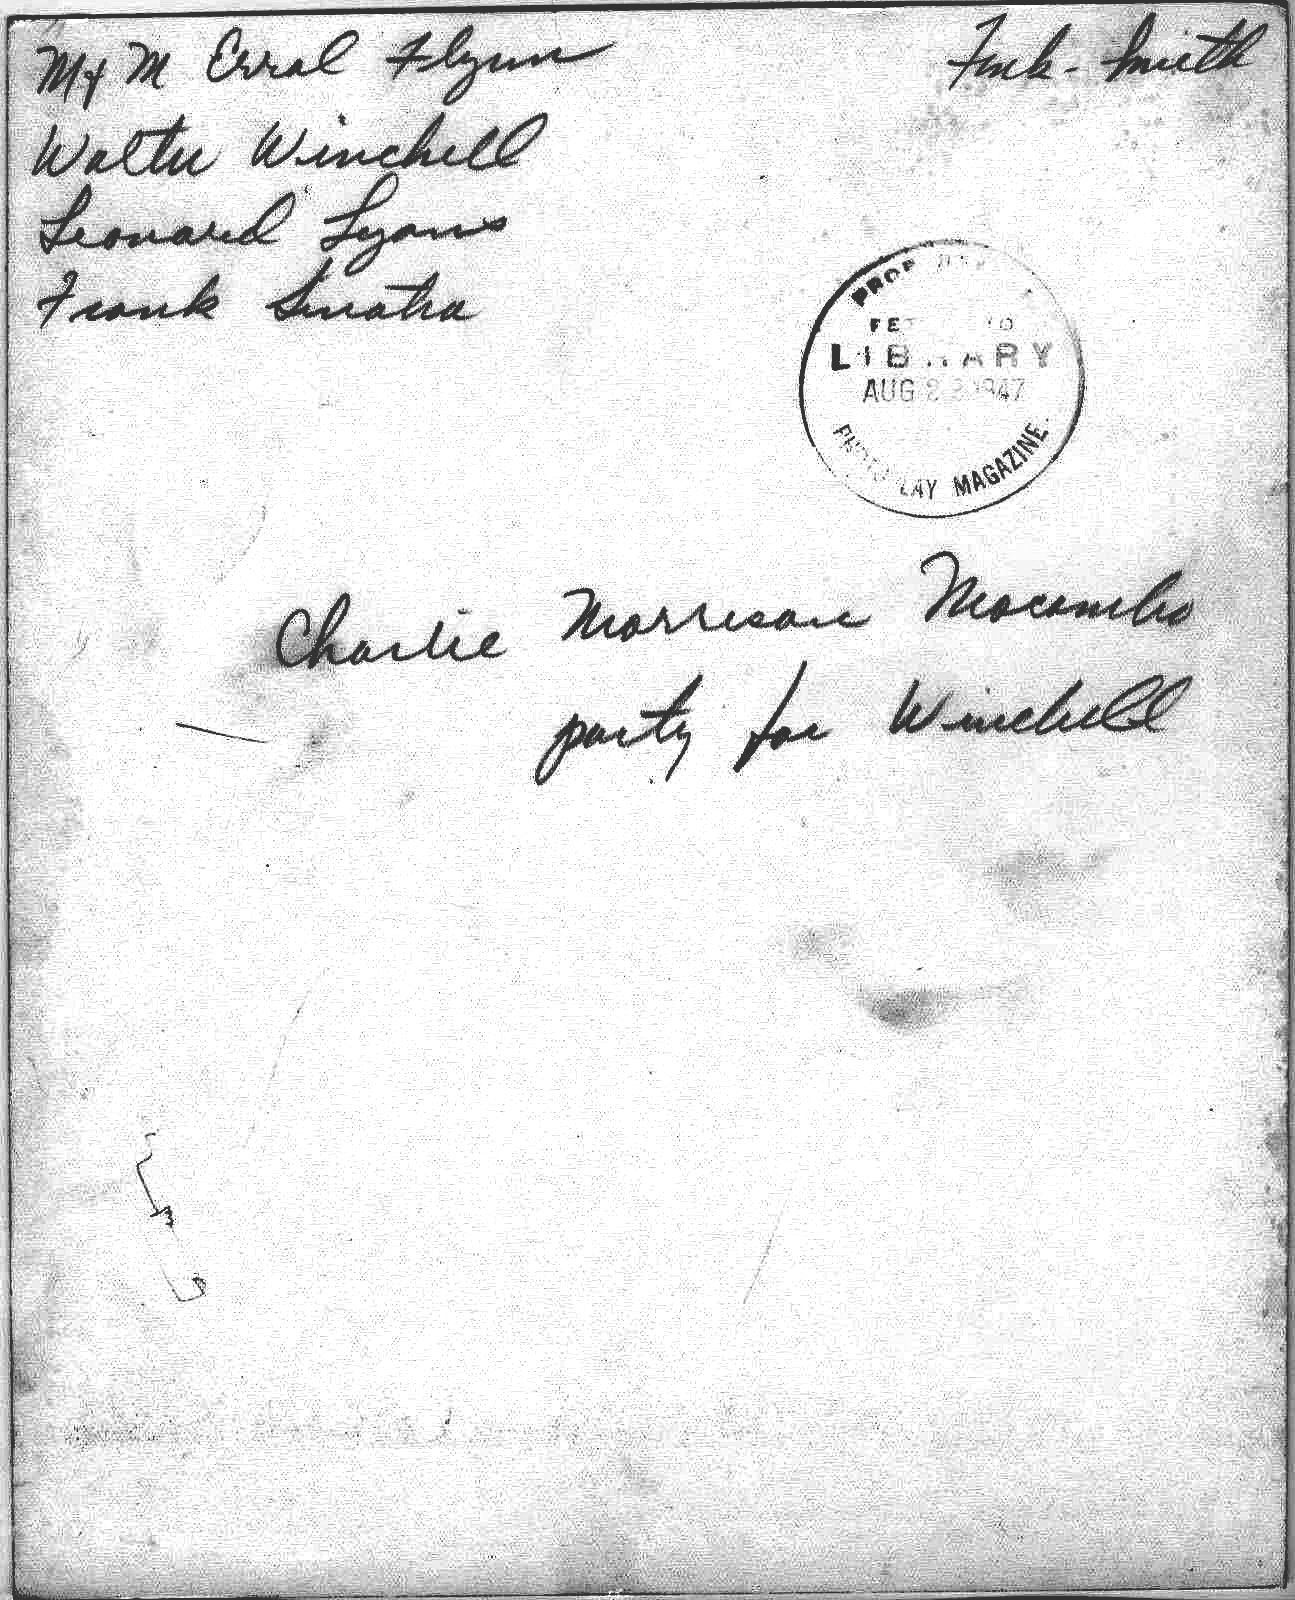 M + M Erral Flynn
Walter Winchell
Leonard Lyons
Frank Sinatra
Fink - Smith
PROP
LIBRARY
AUG 1947
PHOTOPLAY MAGAZINE.
Charlie Morrison Mocambo
party for Winchell